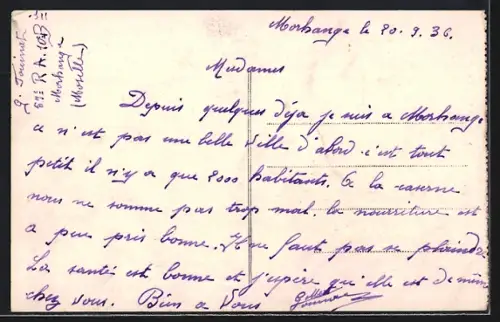 Morhange le 20.9.36.
Mesdames
Depuis quelques déja je suis a Morhange
a n'est pas une belle Ville d'abord c'est tout
petit il n'y a que 8000 habitants. A la caserne
nous ne somme pas trop mal. la nourriture est
a peu pris bonne. Il ne faut pas se plaindre
La santé est bonne et j'espère qu'elle est de même
chez vous. Bien a Vous
R.A.
Morhange
(Moselle)